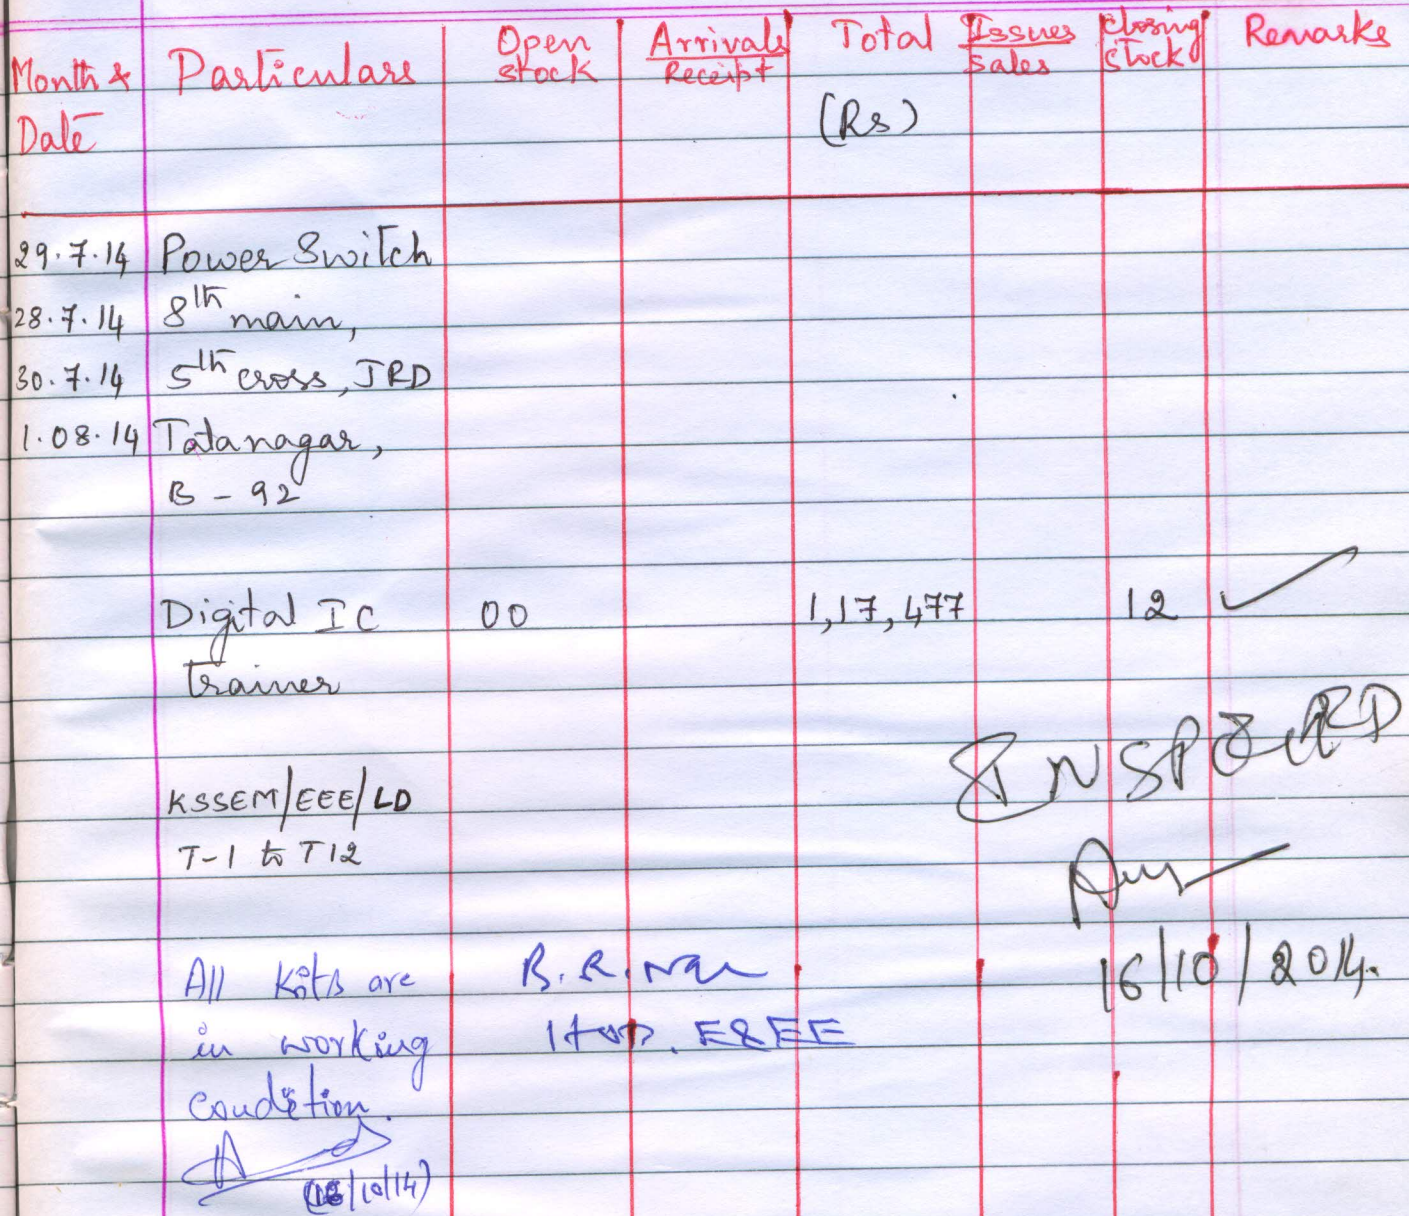 Month & Date Particulars Open stock Arrivals Receipt Total (Rs) Issues Sales Closing stock Remarks
29.7.14 Power Switch
28.7.14 8th main,
30.7.14 5th cross, JRD
1.08.14 Tatanagar,
B - 92
Digital IC 00 1,17,477 12 ✓
trainer
KSSEM/EEE/LD
T-1 to T12
All kits are B. R.
in working E&EE
condition.
16/10/2014.